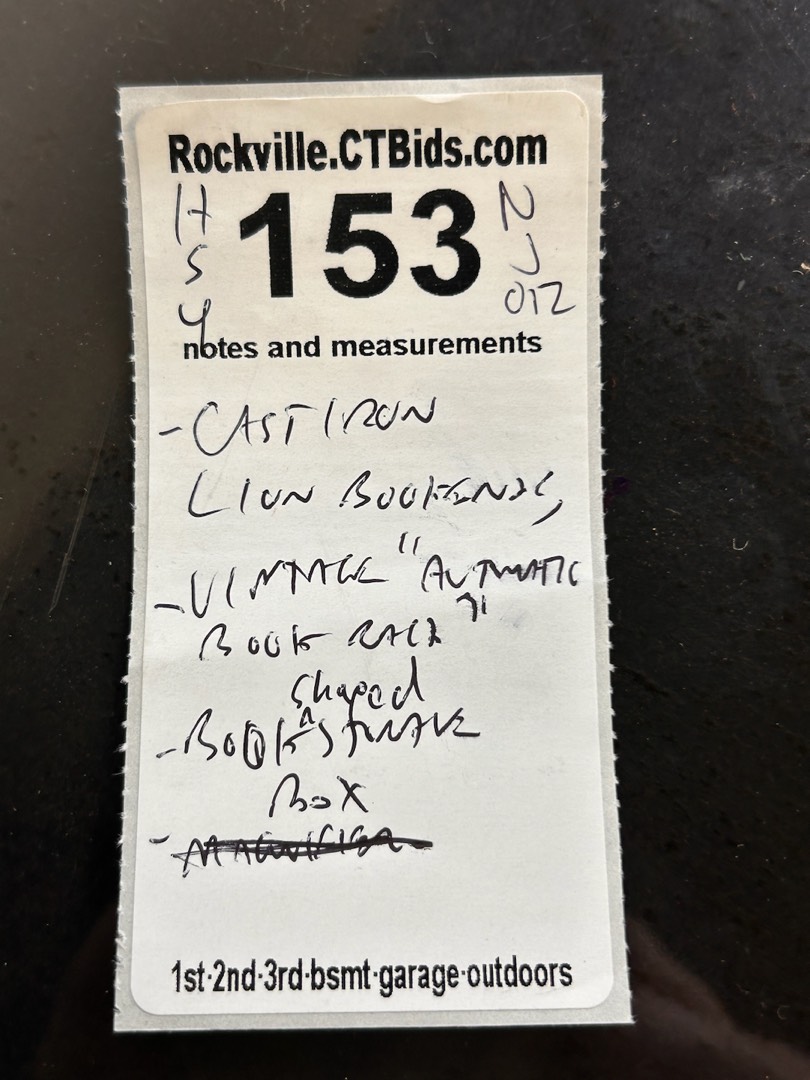 Rockville.CTBids.com
H 153 N
S J
Y OTZ
notes and measurements
- CAST IRON
LION BOOKENDS,
- VINTAGE "AUTOMATIC
BOOK RACK"
shaped
- BOOK ^ STORAGE
BOX
- MAGNIFIER
1st·2nd·3rd·bsmt·garage·outdoors